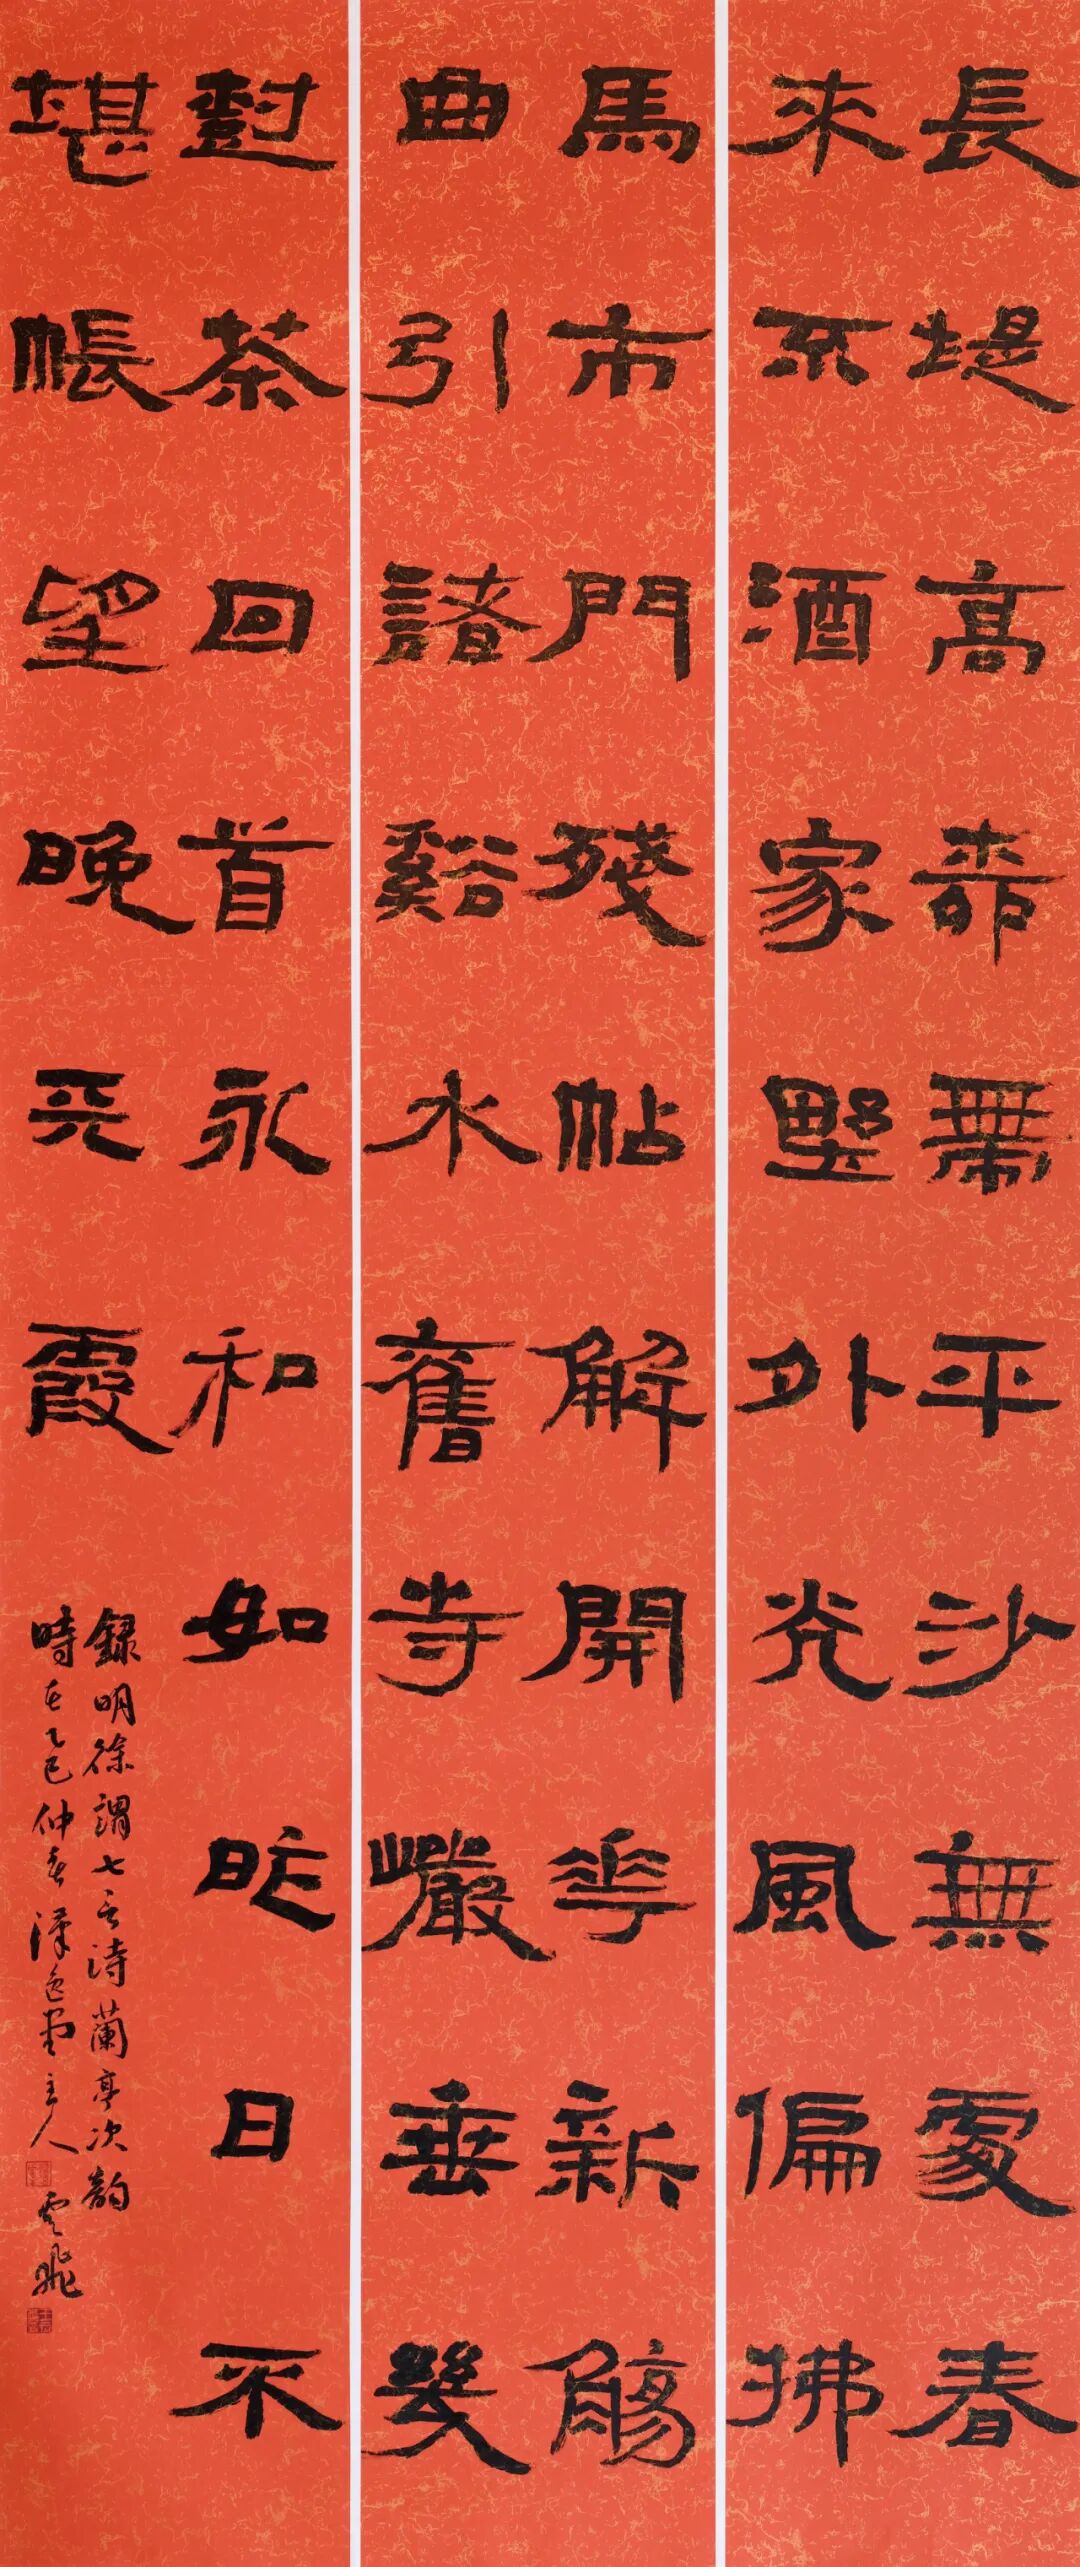 長堤高柳帶平沙無處春
來不酒家野外光風偏拂
馬市門殘帖解開花新觴
曲引諸谿水舊寺巖垂幾
尌茶回首永和如昨日不
堪帳望晚天霞
錄明徐謂七言詩蘭亭次韻
時在乙巳仲春漢堂主人雲飛